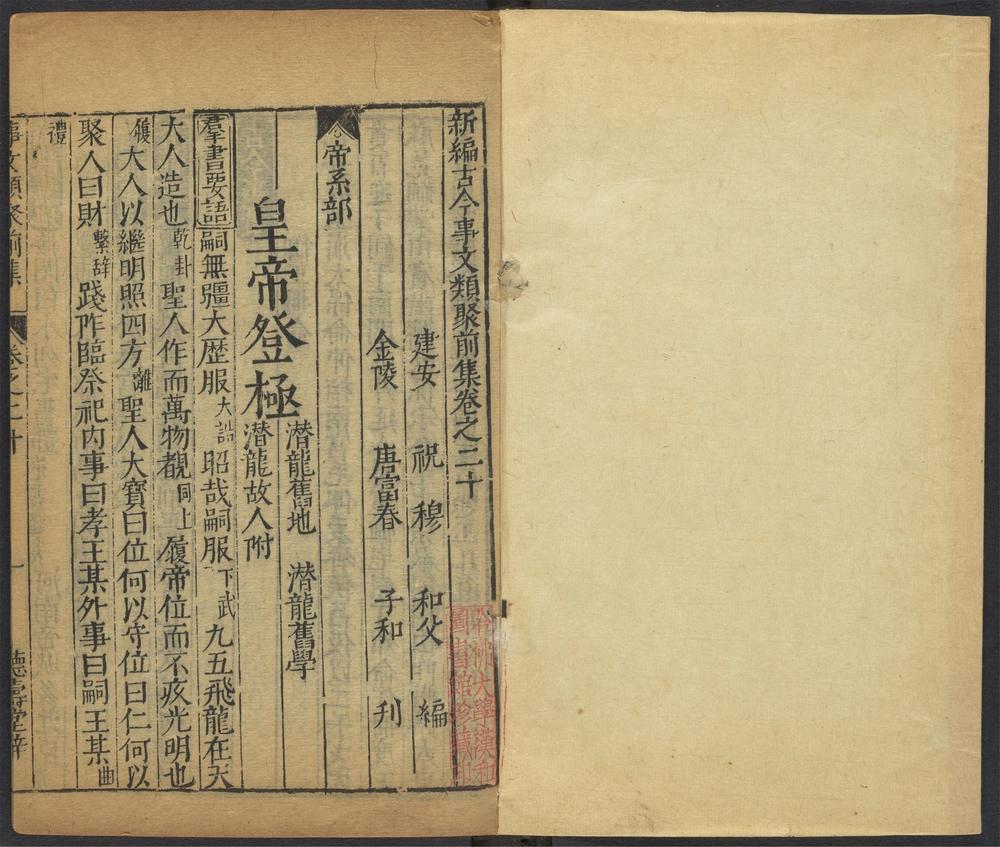 新編古今事文類聚前集卷之二十
建安 祝 穆 和父 編
金陵 唐富春 子和 刋
帝系部
皇帝登極 潜龍舊地 潜龍舊學
潜龍故人附
羣書要語 嗣無疆大歴服 大誥 昭哉嗣服 下武 九五飛龍在天
大人造也 乾卦 聖人作而萬物覩 同上 履帝位而不疚光明也
履 大人以繼明照四方 離 聖人大寶曰位何以守位曰仁何以
聚人曰財 繫辞 踐阼臨祭祀内事曰孝王某外事曰嗣王某 曲
禮
事文類聚前集 卷之二十 一 德壽堂梓
哈佛大學漢和
圖書館珍藏印